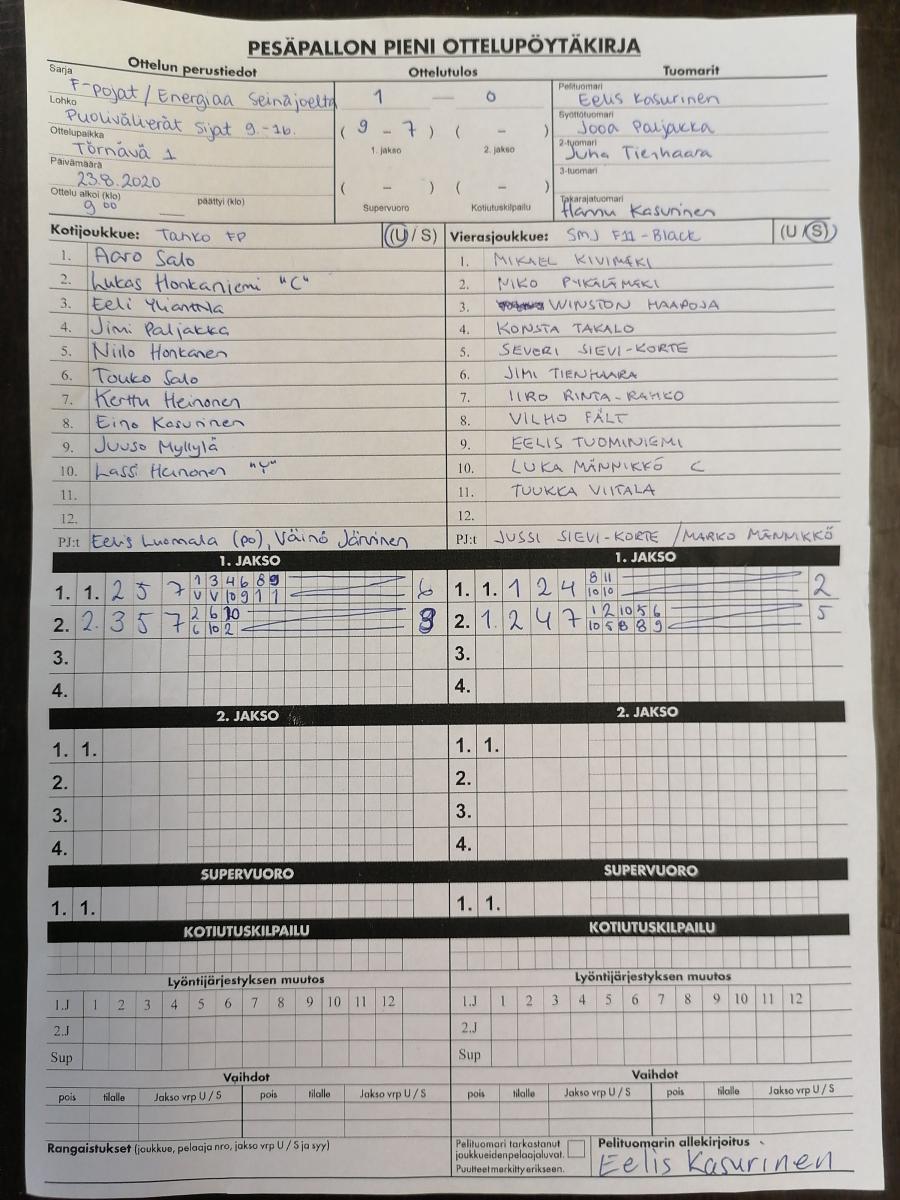 PESÄPALLON PIENI OTTELUPÖYTÄKIRJA
Ottelun perustiedot
Ottelutulos
Tuomarit
Sarja
F-pojat / Energiaa Seinäjoelta
Lohko
Puolivälierät Sijat 9.-16.
Ottelupaikka
Törnävä 1
Päivämäärä
23.8.2020
Ottelu alkoi (klo) päättyi (klo)
9 00
1 — 0
( 9 - 7 ) ( - )
1. jakso 2. jakso
( - ) ( - )
Supervuoro Kotiutuskilpailu
Pelituomari
Eelis Kasurinen
Syöttötuomari
Jooa Paljakka
2-tuomari
Juha Tienhaara
3-tuomari
Takarajatuomari
Hannu Kasurinen
Kotijoukkue: Tahko FP (U / S)
1. Aaro Salo
2. Lukas Honkaniemi "C"
3. Eeli
4. Jimi Paljakka
5. Niilo Honkanen
6. Touko Salo
7. Kerttu Heinonen
8. Eino Kasurinen
9. Juuso Myllylä
10. Lassi Heinonen "Y"
11.
12.
PJ:t Eelis Luomala (po), Väinö Järvinen
Vierasjoukkue: SMJ F11-Black (U / S)
1. MIKAEL KIVIMÄKI
2. NIKO PYKÄLÄMÄKI
3. WINSTON HAAPOJA
4. KONSTA TAKALO
5. SEVERI SIEVI-KORTE
6. JIMI TIENHAARA
7. IIRO RINTA-RAHKO
8. VILHO FÄLT
9. EELIS TUOMINIEMI
10. LUKA MÄNNIKKÖ C
11. TUUKKA VIITALA
12.
PJ:t JUSSI SIEVI-KORTE / MARKO MÄNNIKKÖ
1. JAKSO
1. 1. 2 5 7 1 3 4 6 8 9 6
V V 10 9 1 1
2. 2. 3 5 7 2 6 10 3
6 10 2
3.
4.
1. JAKSO
1. 1. 1 2 4 8 11 2
10 10
2. 1. 2 4 7 1 2 10 5 6 5
10 5 8 8 9
3.
4.
2. JAKSO
1. 1.
2.
3.
4.
2. JAKSO
1. 1.
2.
3.
4.
SUPERVUORO
1. 1.
SUPERVUORO
1. 1.
KOTIUTUSKILPAILU
KOTIUTUSKILPAILU
Lyöntijärjestyksen muutos
1.J 1 2 3 4 5 6 7 8 9 10 11 12
2.J
Sup
Lyöntijärjestyksen muutos
1.J 1 2 3 4 5 6 7 8 9 10 11 12
2.J
Sup
Vaihdot
pois tilalle Jakso vrp U / S pois tilalle Jakso vrp U / S
Vaihdot
pois tilalle Jakso vrp U / S pois tilalle Jakso vrp U / S
Rangaistukset (joukkue, pelaaja nro, jakso vrp U / S ja syy)
Pelituomari tarkastanut
joukkueidenpelaajaluvat.
Puutteet merkitty erikseen.
Pelituomarin allekirjoitus
Eelis Kasurinen